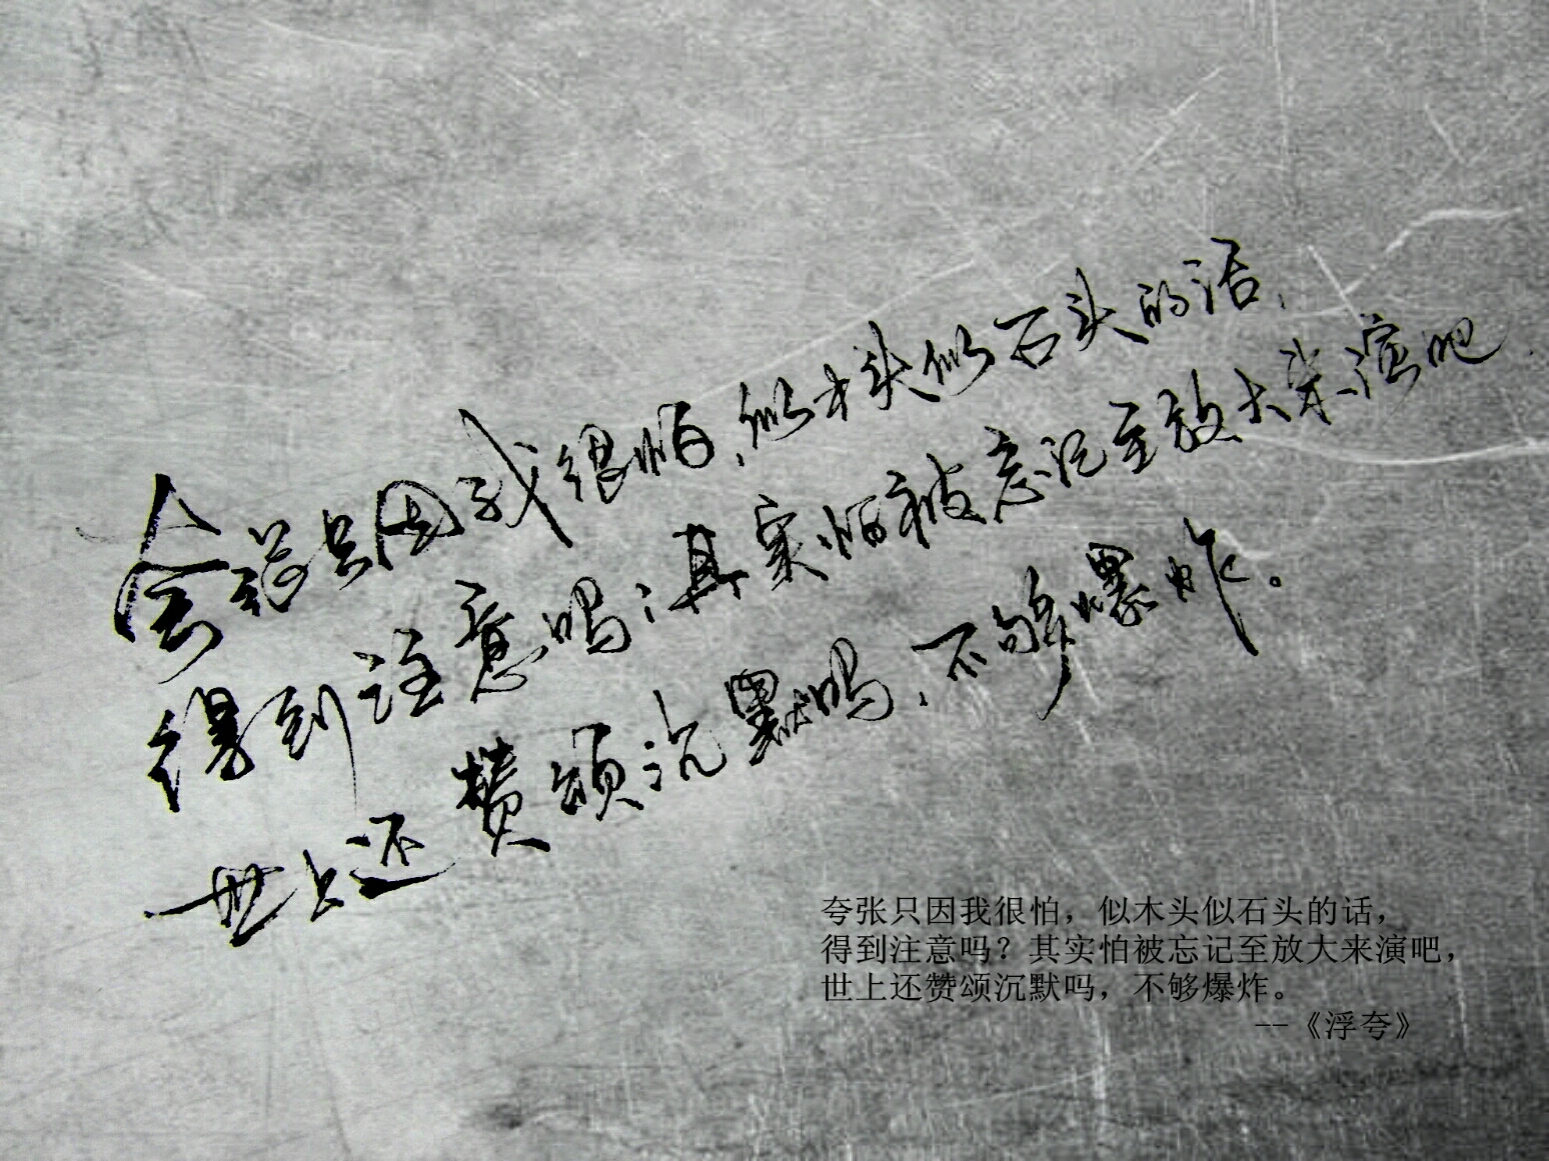 夸张只因我很怕，似木头似石头的话，
得到注意吗？其实怕被忘记至放大来演吧，
世上还赞颂沉默吗，不够爆炸。
夸张只因我很怕，似木头似石头的话，
得到注意吗？其实怕被忘记至放大来演吧，
世上还赞颂沉默吗，不够爆炸。
--《浮夸》